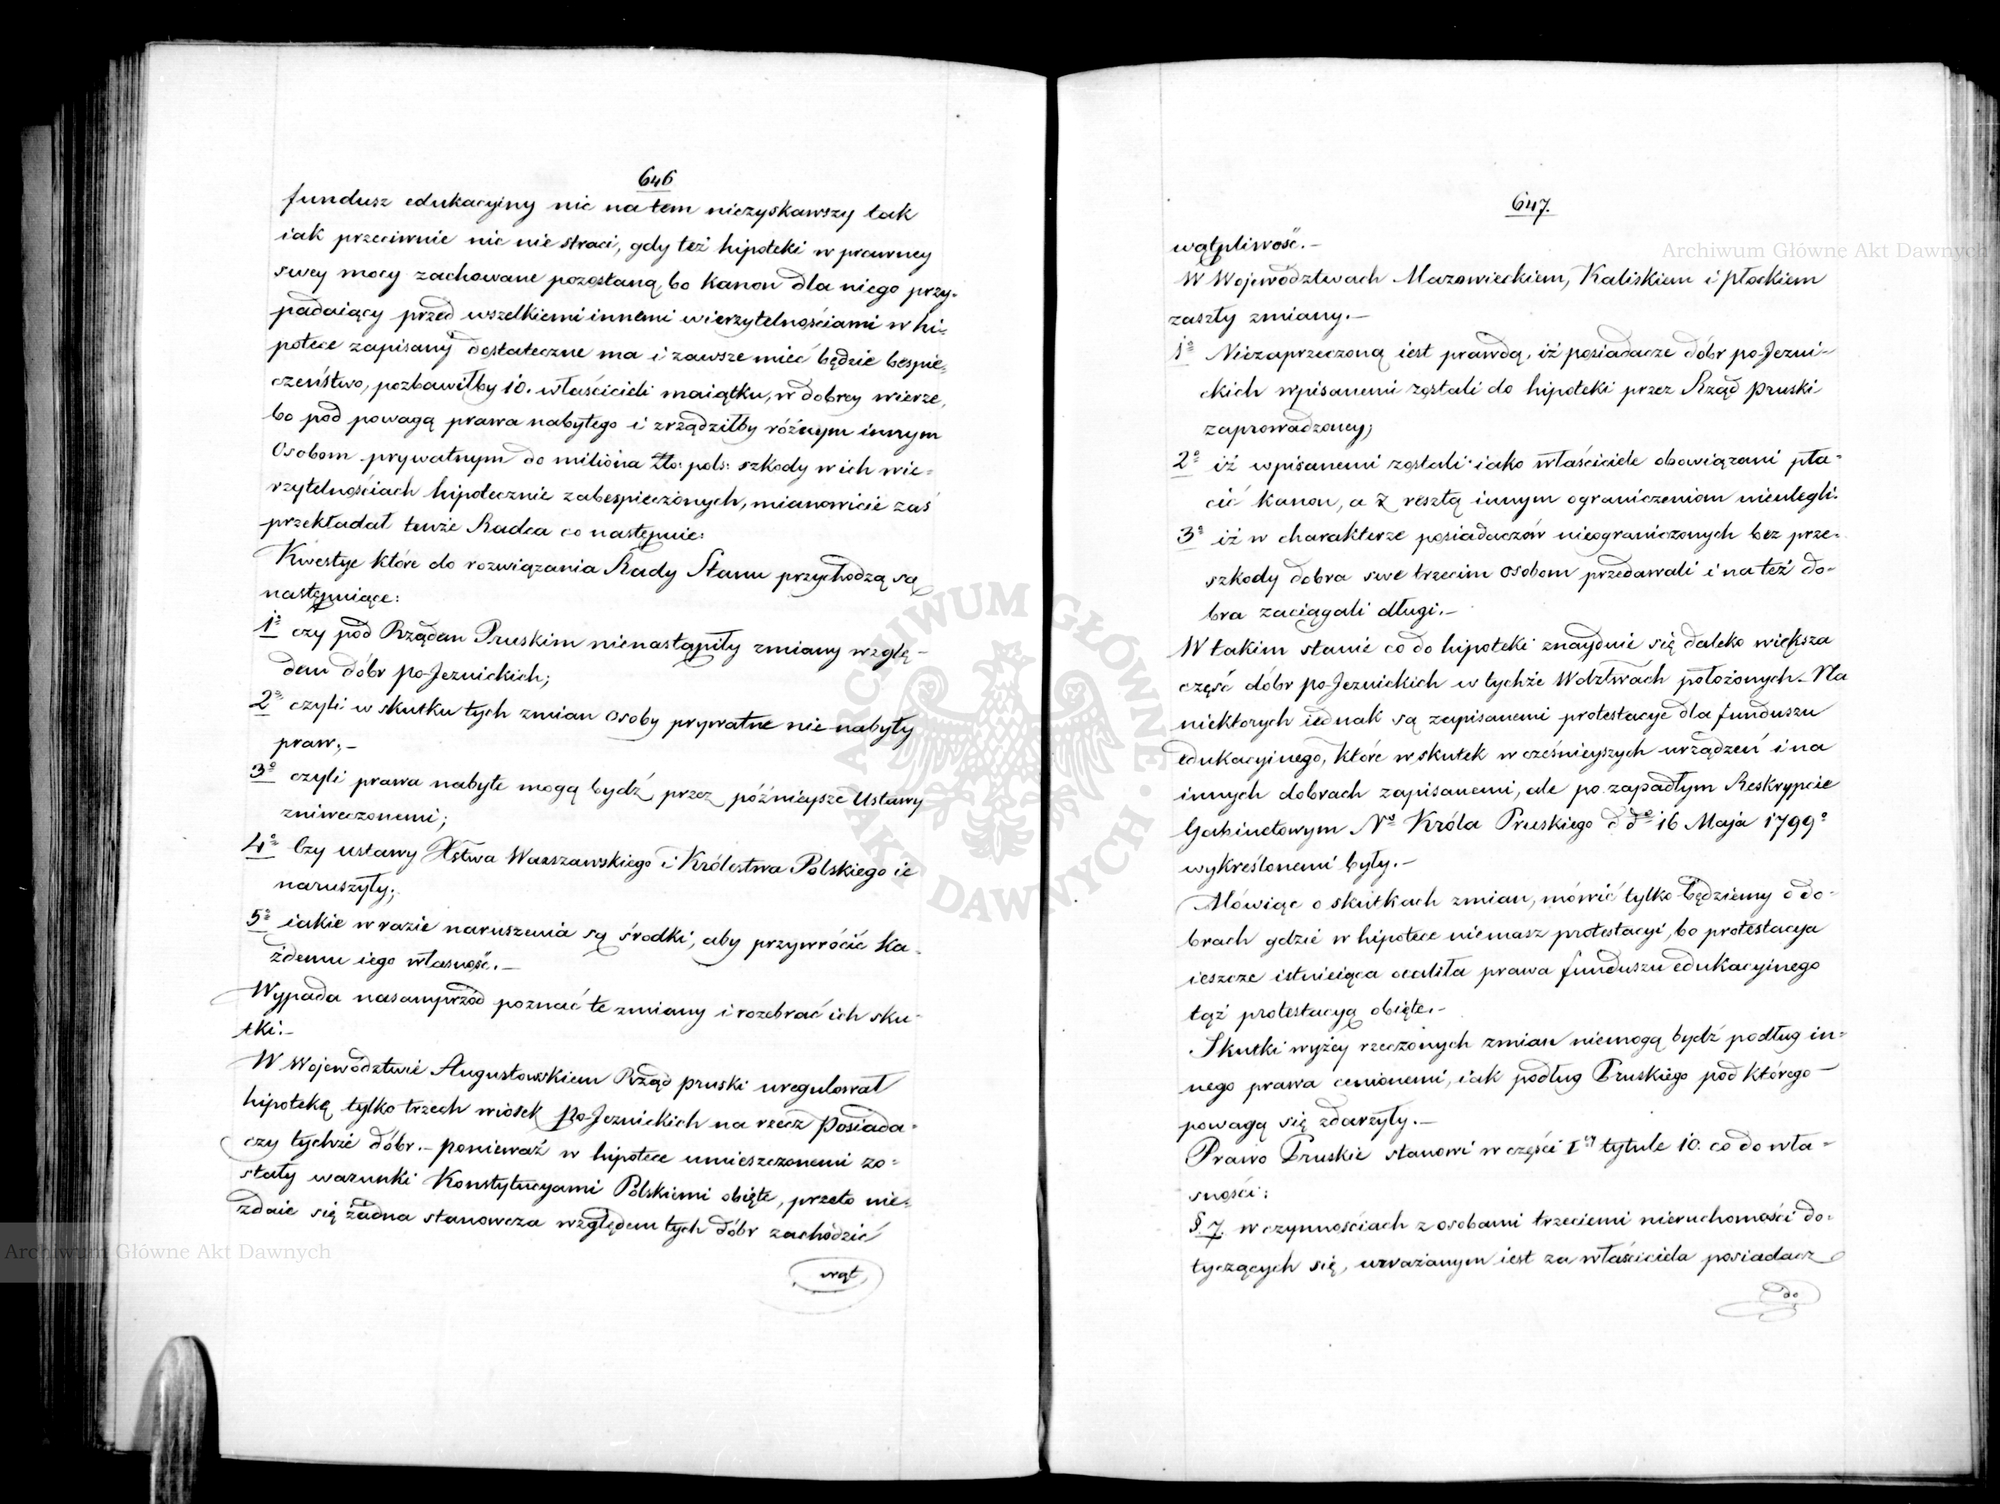 646
fundusz edukacyiny nic na tem niezyskawszy tak
iak przeciwnie nic nie straci, gdy też hipoteki w prawney
swey mocy zachowane pozostaną bo kanon dla niego przy-
padaiący przed wszelkiemi innemi wierzytelnościami w hi-
potece zapisany dostateczne ma i zawsze mieć będzie bespie-
czeństwo, pozbawiłby 10. właścicieli maiątku, w dobrey wierze,
bo pod powagą prawa nabytego i zrządziłby różnym innym
Osobom prywatnym do miliona Zło: pols: szkody w ich wie-
rzytelnościach hipotecznie zabespieczonych, mianowicie zaś
przekładał tenże Radca co następuie:
Kwestye które do rozwiązania Rady Stanu przychodzą są
następuiące:
1º czy pod Rządem Pruskim nienastąpiły zmiany wzglę-
dem dóbr po-Jezuickich;
2º czyli w skutku tych zmian osoby prywatne nie nabyły
praw;-
3º czyli prawa nabyte mogą bydź przez późnieysze Ustawy
zniweczonemi;
4º Czy ustawy Xstwa Warszawskiego i Królestwa Polskiego ie
naruszyły;
5º iakie w razie naruszenia są środki, aby przywrócić ka-
żdemu iego własność.-
Wypada nasamprzód poznać te zmiany i rozebrać ich sku-
tki.-
W Województwie Augustowskiem Rząd pruski uregulował
hipotekę tylko trzech wiosek po-Jezuickich na rzecz Posiada-
czy tychże dóbr.- ponieważ w hipotece umieszczonemi zo-
stały warunki Konstytucyami Polskiemi obięte, przeto nie-
zdaie się żadna stanowcza względem tych dóbr zachodzić
wąt
647.
wątpliwość.-
W Województwach Mazowieckiem, Kaliskiem i płockiem
zaszły zmiany.-
1º Niezaprzeczoną iest prawdą, iż posiadacze dóbr po-Jezui-
ckich wpisanemi zostali do hipoteki przez Rząd pruski
zaprowadzoney;
2º iż wpisanemi zostali iako właściciele obowiązani pła-
cić kanon, a z resztą innym ograniczeniom nieulegli.
3º iż w charakterze posiadaczów nieograniczonych bez prze-
szkody dobra swe trzecim osobom przedawali i na też do-
bra zaciągali długi.-
W takim stanie co do hipoteki znayduie się daleko większa
część dóbr po-Jezuickich w tychże Wdztwach położonych. Na
niektorych iednak są zapisanemi protestacye dla funduszu
edukacyinego, które w skutek wcześnieyszych urządzeń i na
innych dobrach zapisanemi, ale po zapadłym Reskrypcie
Gabinetowym Nº Króla Pruskiego d dº 16 Maja 1799º
wykreślonemi były.-
Mówiąc o skutkach zmian, mówić tylko będziemy o do-
brach gdzie w hipotece niemasz protestacyi, bo protestacya
ieszcze istnieiąca ocaliła prawa funduszu edukacyinego
tąż protestacyą obięte.-
Skutki wyżey rzeczonych zmian niemogą bydź podług in-
nego prawa cenionemi, iak podług Pruskiego pod którego
powagą się zdarzyły.-
Prawo Pruskie stanowi w części Iey tytule 10. co do wła-
sności:
§. 7. w czynnościach z osobami trzeciemi nieruchomości do-
tyczących się, uważanym iest za właściciela posiadacz
do
Archiwum Główne Akt Dawnych
Archiwum Główne Akt Dawnych
ARCHIWUM GŁÓWNE · AKT DAWNYCH ·